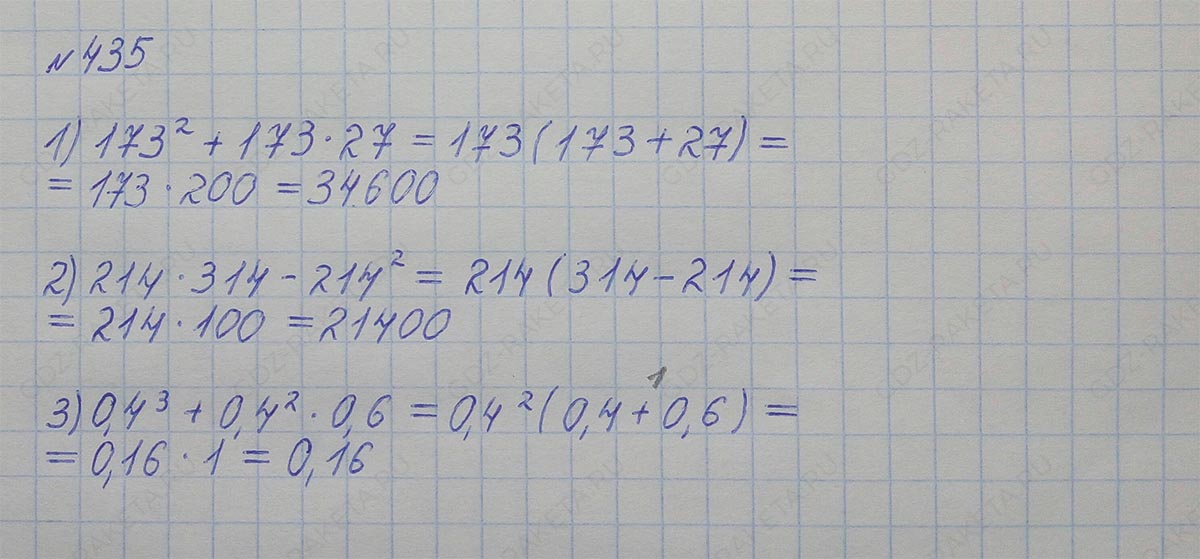 №435
1) 173² + 173·27 = 173(173+27) =
= 173·200 = 34600
2) 214·314 - 214² = 214(314-214) =
= 214·100 = 21400
1
3) 0,4³ + 0,4²·0,6 = 0,4²(0,4+0,6) =
= 0,16·1 = 0,16
GDZ-RAKETA.RU